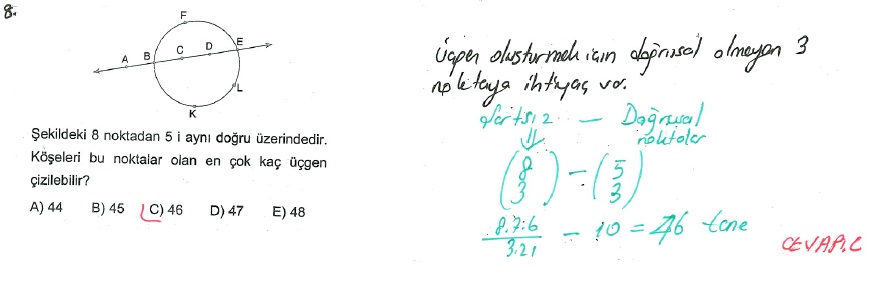 8.
F
A B C D E
L
K
Şekildeki 8 noktadan 5 i aynı doğru üzerindedir.
Köşeleri bu noktalar olan en çok kaç üçgen
çizilebilir?
A) 44 B) 45 C) 46 D) 47 E) 48
Üçgen oluşturmak için doğrusal olmayan 3
noktaya ihtiyaç var.
Şartsız — Doğrusal
noktalar
⇓
(8 3) − (5 3)
8.7.6
3.2.1 − 10 = 46 tane
CEVAP.C